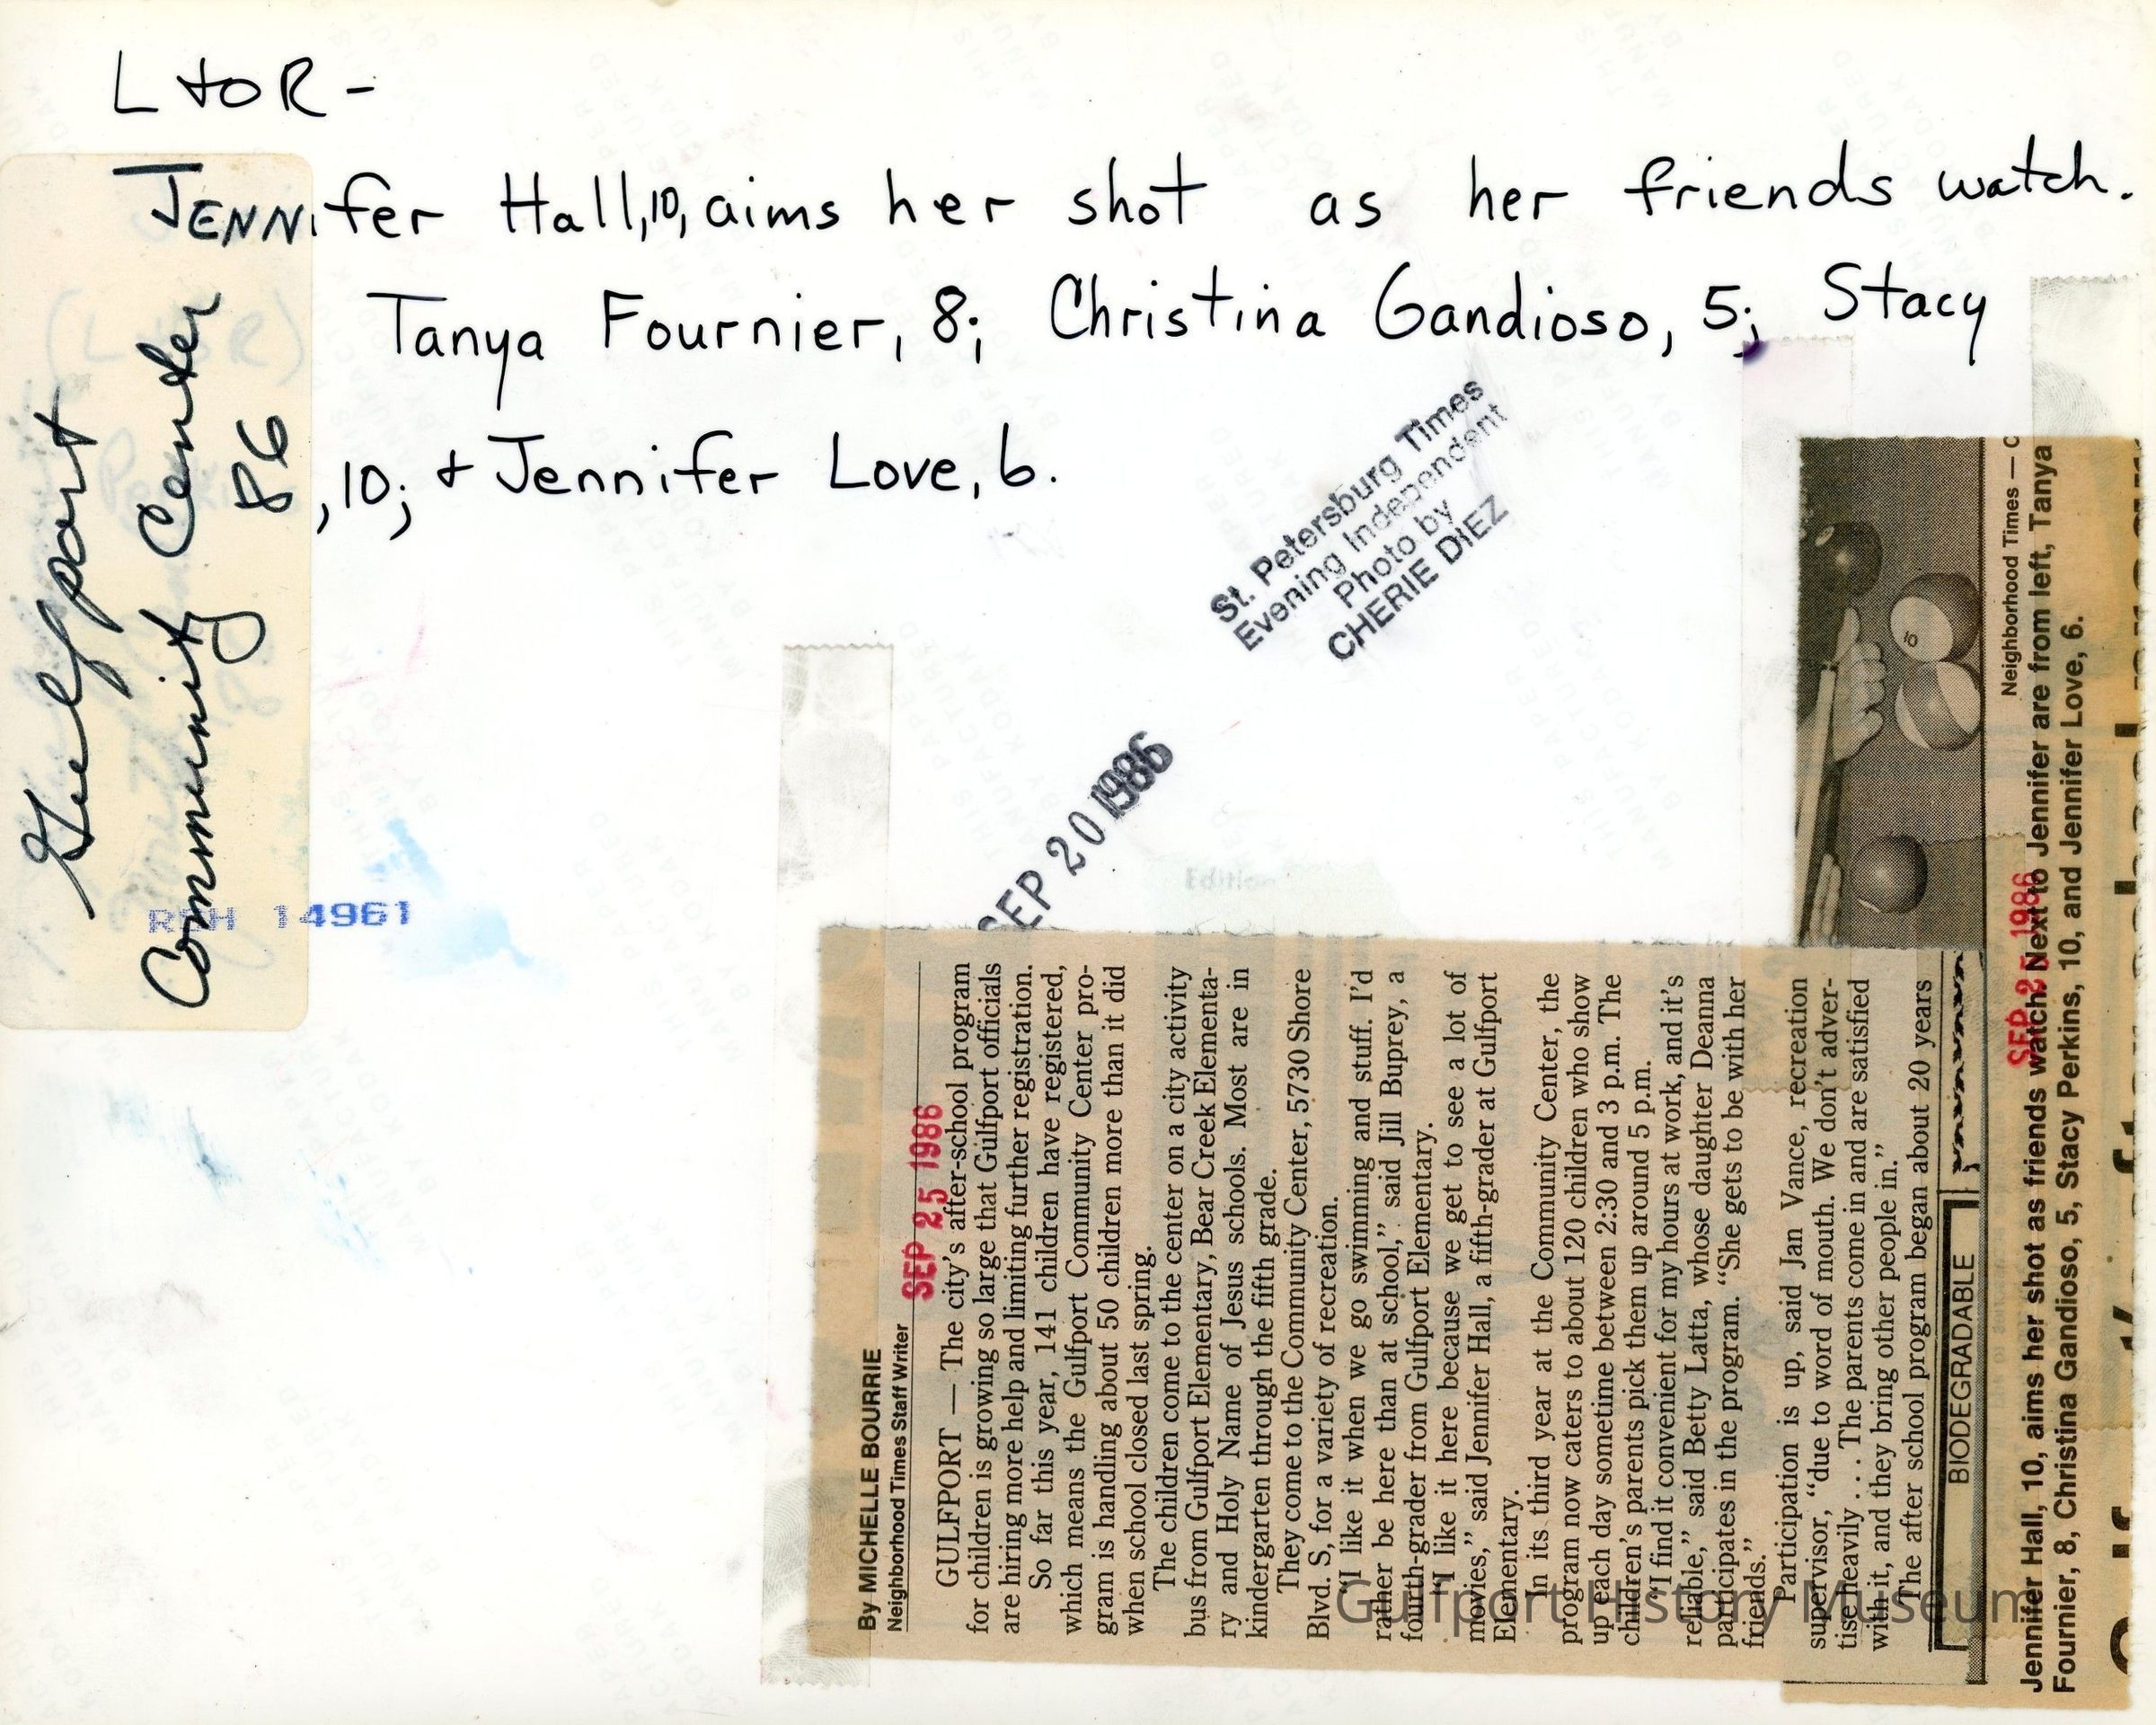 L to R -
JENNifer Hall, 10, aims her shot as her friends watch.
Tanya Fournier, 8; Christina Gandioso, 5; Stacy
, 10; + Jennifer Love, 6.
Gulfport
Community Center
86
RDH 14961
St. Petersburg Times
Evening Independent
Photo by
CHERIE DIEZ
SEP 20 1986
Edition
By MICHELLE BOURRIE
Neighborhood Times Staff Writer
SEP 25 1986
GULFPORT — The city's after-school program
for children is growing so large that Gulfport officials
are hiring more help and limiting further registration.
So far this year, 141 children have registered,
which means the Gulfport Community Center pro-
gram is handling about 50 children more than it did
when school closed last spring.
The children come to the center on a city activity
bus from Gulfport Elementary, Bear Creek Elementa-
ry and Holy Name of Jesus schools. Most are in
kindergarten through the fifth grade.
They come to the Community Center, 5730 Shore
Blvd. S, for a variety of recreation.
"I like it when we go swimming and stuff. I'd
rather be here than at school," said Jill Buprey, a
fourth-grader from Gulfport Elementary.
"I like it here because we get to see a lot of
movies," said Jennifer Hall, a fifth-grader at Gulfport
Elementary.
In its third year at the Community Center, the
program now caters to about 120 children who show
up each day sometime between 2:30 and 3 p.m. The
children's parents pick them up around 5 p.m.
"I find it convenient for my hours at work, and it's
reliable," said Betty Latta, whose daughter Deanna
participates in the program. "She gets to be with her
friends."
Participation is up, said Jan Vance, recreation
supervisor, "due to word of mouth. We don't adver-
tise heavily . . . The parents come in and are satisfied
with it, and they bring other people in."
The after school program began about 20 years
BIODEGRADABLE
10
Neighborhood Times — C
SEP 25 1986
Jennifer Hall, 10, aims her shot as friends watch. Next to Jennifer are from left, Tanya
Fournier, 8, Christina Gandioso, 5, Stacy Perkins, 10, and Jennifer Love, 6.
Gulfport History Museum